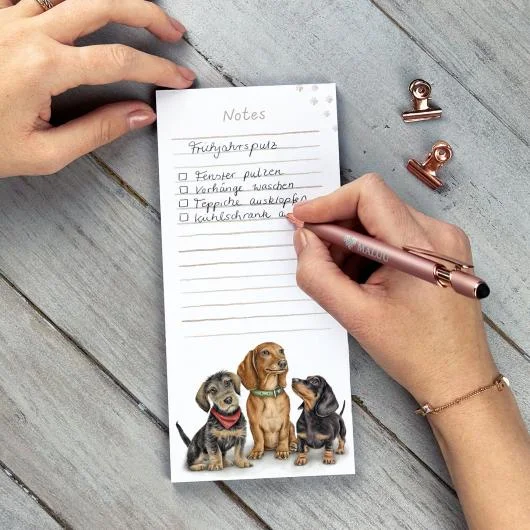 Notes
Frühjahrsputz
Fenster putzen
Vorhänge waschen
Teppiche ausklopfen
Kühlschrank a
MALUU